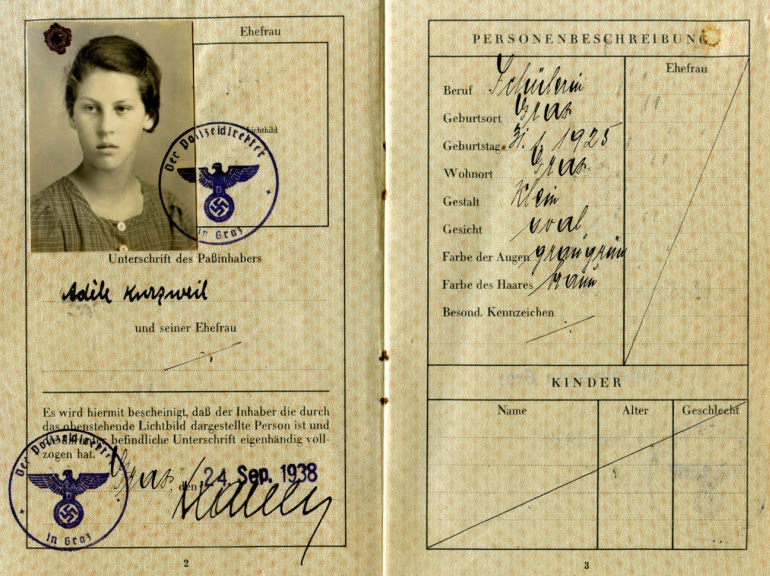 Ehefrau
Lichtbild
Der Polizeidirektor
in Graz
Unterschrift des Paßinhabers
Adèle Kurzweil
und seiner Ehefrau
Es wird hiermit bescheinigt, daß der Inhaber die durch
das obenstehende Lichtbild dargestellte Person ist und
die darunter befindliche Unterschrift eigenhändig voll-
zogen hat.
Graz, den 24. Sep. 1938
Der Polizeidirektor
in Graz
2
PERSONENBESCHREIBUNG
Ehefrau
Beruf Schülerin
Geburtsort Graz
Geburtstag 31. 1. 1925
Wohnort Graz
Gestalt klein
Gesicht oval
Farbe der Augen graugrün
Farbe des Haares braun
Besond. Kennzeichen
KINDER
Name Alter Geschlecht
3